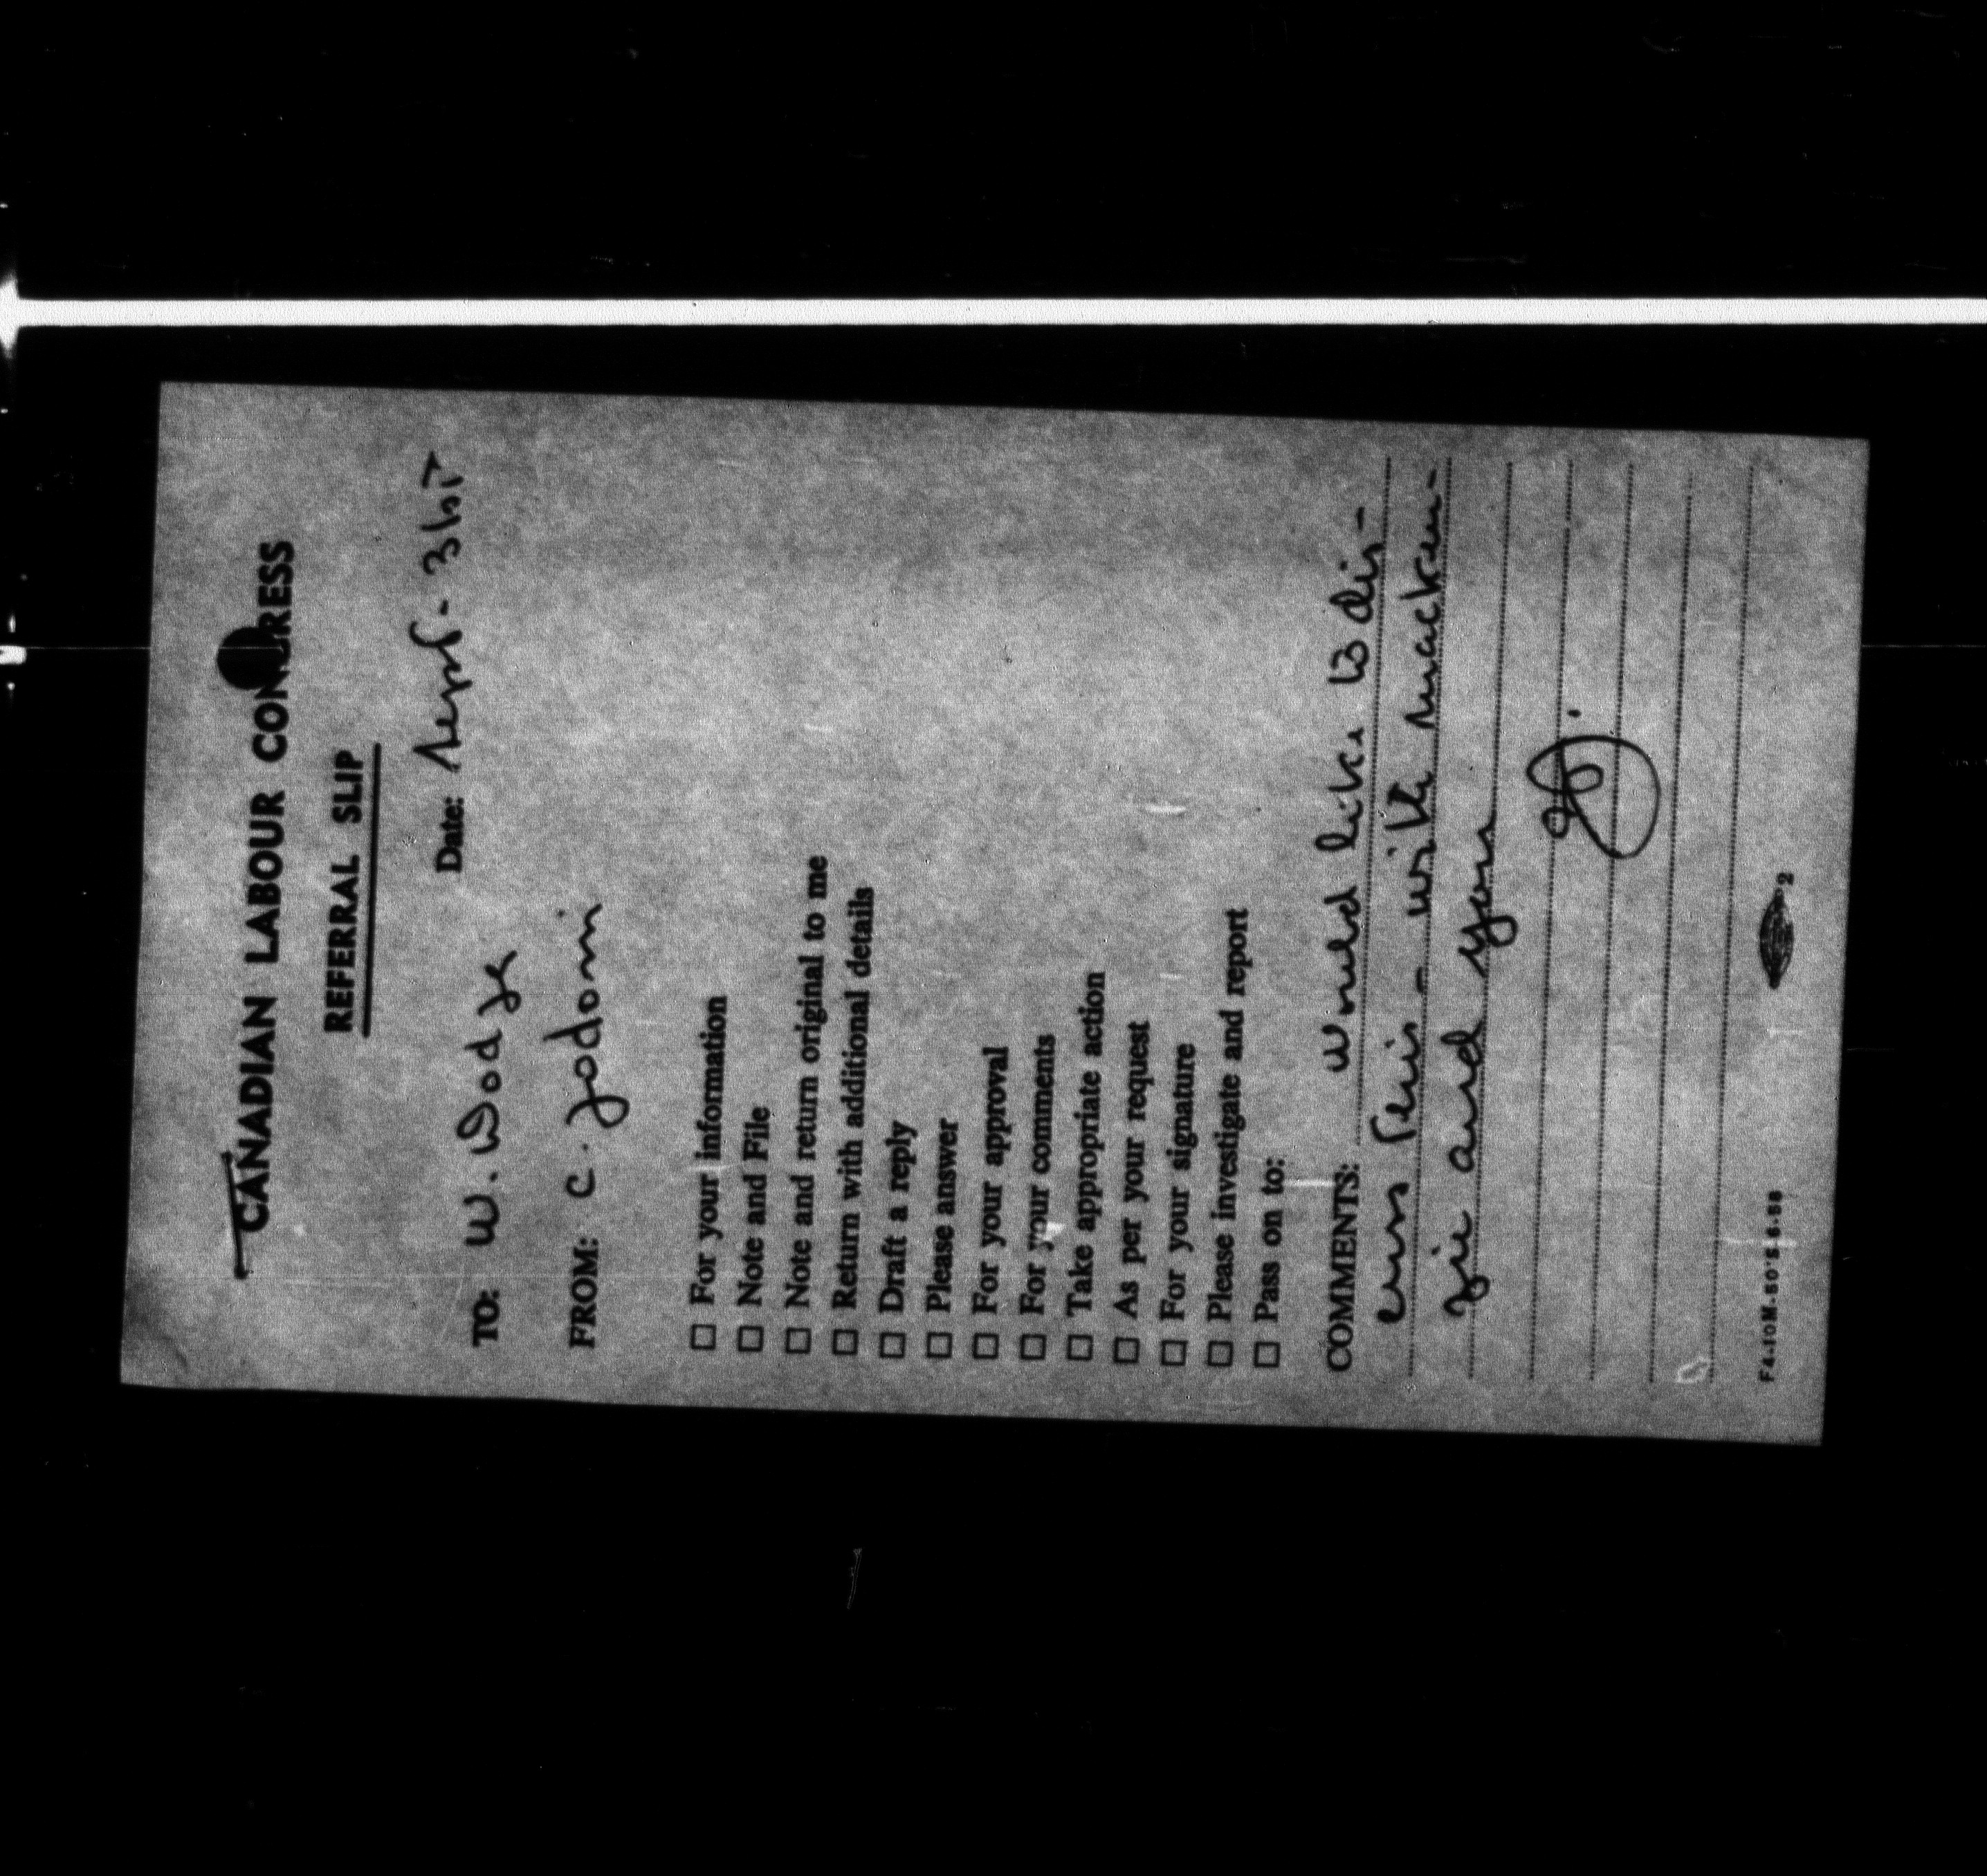 CANADIAN LABOUR CONGRESS
REFERRAL SLIP
Date: Sept - 3
TO: W. Dodge
FROM: C. Jodoin
☐ For your information
☐ Note and File
☐ Note and return original to me
☐ Return with additional details
☐ Draft a reply
☐ Please answer
☐ For your approval
☐ For your comments
☐ Take appropriate action
☐ As per your request
☐ For your signature
☐ Please investigate and report
☐ Pass on to:
COMMENTS: would like to dis-
cuss this - with macken-
zie and you
F4-10M-50'S.6-58
2